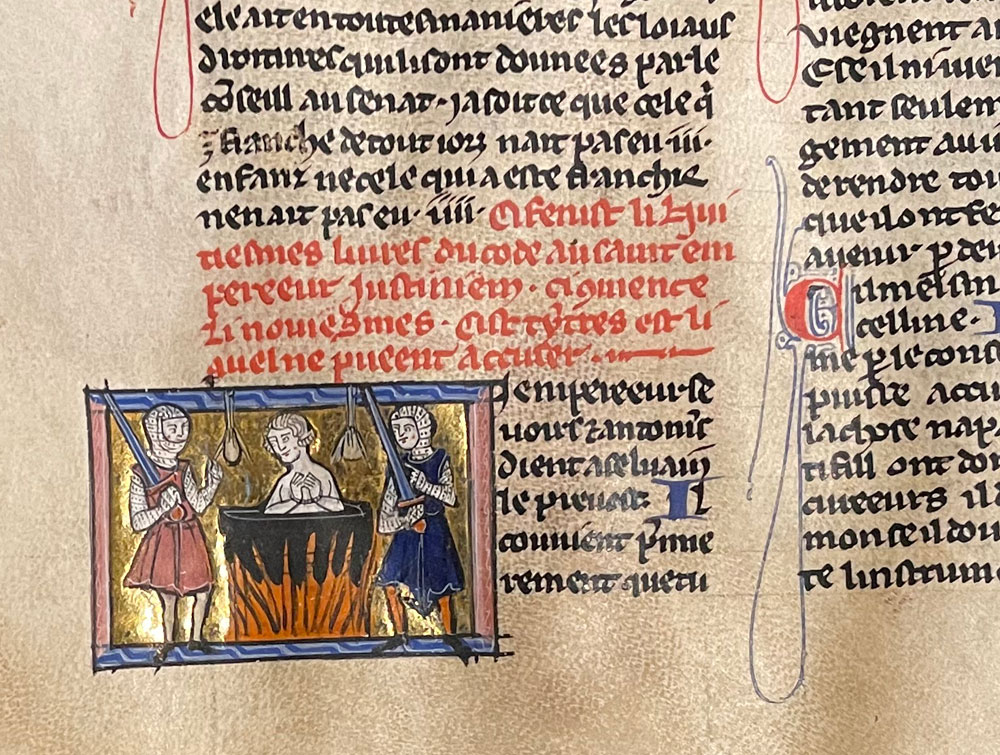 ele ait en toutes manieres les loiaus
droitures qui li sont donnees par le
cōseill au senat · ja soit ce que cele q̄
franche de tout iorz nait pas eu · iii ·
enfanz ne cele qui a este franchie
nen ait pas eu · iiii · Ci fenist li hui
tiesmes livres du code au saint em
pereeur Justinien · ci qmence
li noviesmes · Cist tytres est li
quel ne pueent accuser ·
empereeur se
vours ⁊ antonis
dient a seluain
le prevost · Il
covient p̄me
rement que tu
viegnent a
E se il ni vie
tant seulem
gement au
de rendre tou
que il ont fe
avenir p̲ de
Cil meisin
celline ·
me p̲ le cons
puisse accu
la chose na pa
ti fill ont do
cureeurs il
mon seil dou
te linstrum